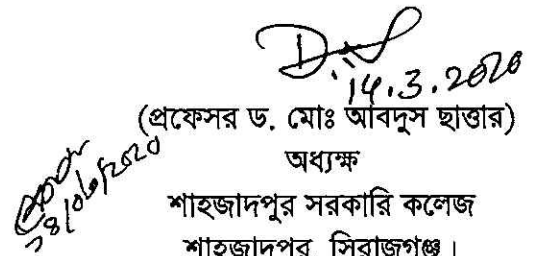 14.3.2020
(প্রফেসর ড. মোঃ আবদুস ছাত্তার)
অধ্যক্ষ
শাহজাদপুর সরকারি কলেজ
শাহজাদপুর, সিরাজগঞ্জ।